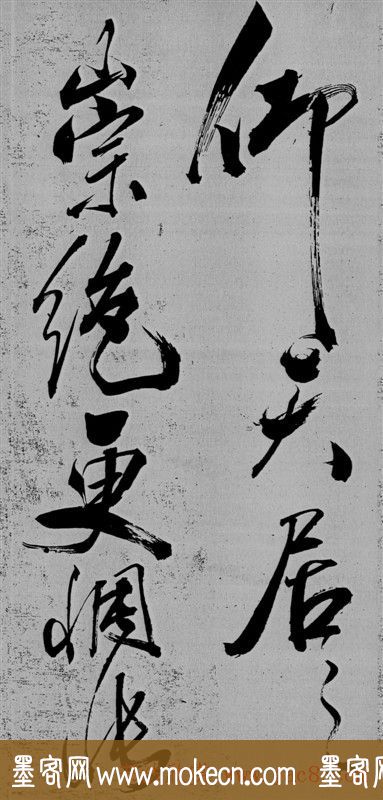 仰天居之
崇絶更惆悵
墨客网 www.mokecn.com 墨客网